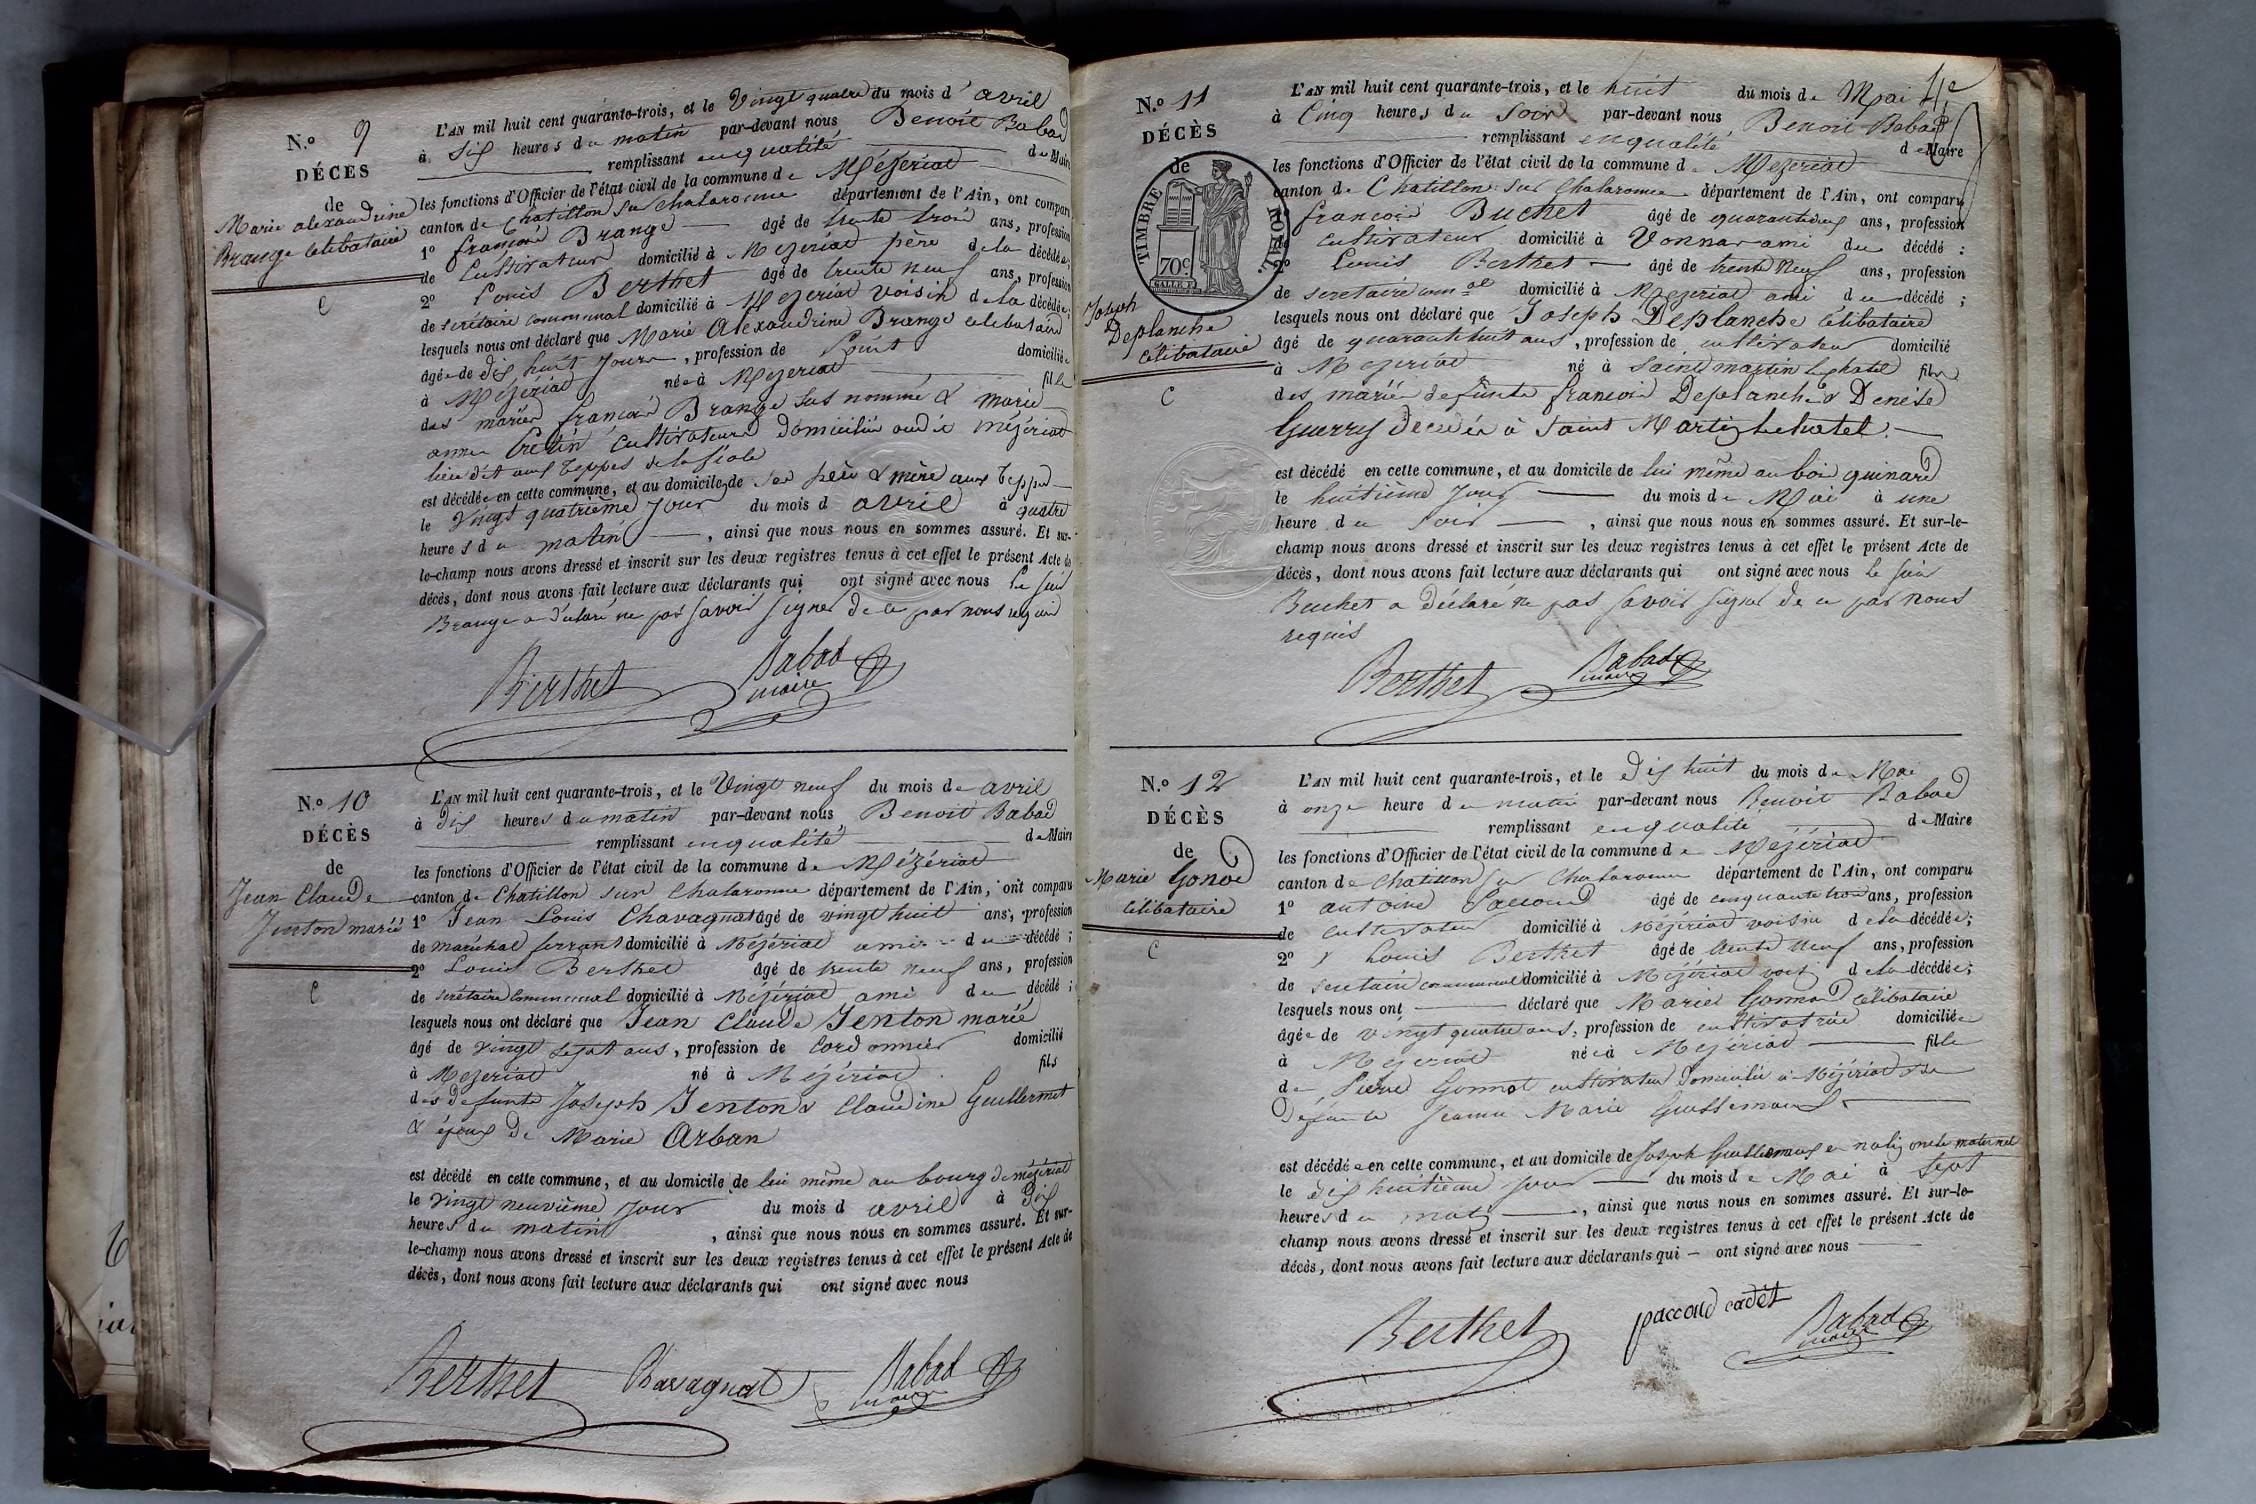 N.º 9
DÉCÈS
de
Marie alexandrine
Brange célibataire
C
L'AN mil huit cent quarante-trois, et le Vingt quatre du mois d' avril
à dix heures du matin par-devant nous Benoit Babad
remplissant en qualité de Maire
les fonctions d'Officier de l'état civil de la commune de Mézériat
canton de Chatillon sur chalaronne département de l'Ain, ont comparu
1º françois Brange âgé de trente trois ans, profession
de Cultivateur domicilié à Mezériat père de la décédée;
2º Louis Berthet âgé de trente neuf ans, profession
de secrétaire communal domicilié à Mezeriat voisin de la décédée;
lesquels nous ont déclaré que Marie Alexandrine Brange célibataire
âgée de dix huit Jours, profession de Point domiciliée
à Mézériat née à Mezeriat fille
des mariés françois Brange sus nommé & marie
anne Cretin cultivateurs domiciliés audit mézériat
lieu dit aux Teppes de la
est décédée en cette commune, et au domicile de ses père & mère aux Teppes
le Vingt quatrième Jour du mois d avril à quatre
heures du matin, ainsi que nous nous en sommes assuré. Et sur-
le-champ nous avons dressé et inscrit sur les deux registres tenus à cet effet le présent Acte de
décès, dont nous avons fait lecture aux déclarants qui ont signé avec nous le sieur
Brange a déclaré ne pas savoir signer de ce par nous requis
Berthet Babad
maire
N.º 10
DÉCÈS
de
Jean Claude
Jenton marié
C
L'AN mil huit cent quarante-trois, et le Vingt neuf du mois de avril
à dix heures du matin par-devant nous Benoit Babad
remplissant en qualité de Maire
les fonctions d'Officier de l'état civil de la commune de Mézériat
canton de Chatillon sur Chalaronne département de l'Ain, ont comparu
1º Jean Louis Chavagnat âgé de vingt huit ans, profession
de maréchal ferrant domicilié à Mézériat ami du décédé;
2º Louis Berthet âgé de trente neuf ans, profession
de secrétaire Communal domicilié à Mézériat ami du décédé;
lesquels nous ont déclaré que Jean Claude Jenton marié
âgé de vingt sept ans, profession de Cordonnier domicilié
à Mezeriat né à Mézériat fils
des defunts Joseph Jenton & Claudine Guillermet
& époux de Marie Arban
est décédé en cette commune, et au domicile de lui même au bourg de mézériat
le vingt neuvième Jour du mois d avril à dix
heures du matin, ainsi que nous nous en sommes assuré. Et sur-
le-champ nous avons dressé et inscrit sur les deux registres tenus à cet effet le présent Acte de
décès, dont nous avons fait lecture aux déclarants qui ont signé avec nous
Berthet Chavagnat Babad
maire
N.º 11
DÉCÈS
de
TIMBRE ROYAL.
70c
Joseph
Deplanche
célibataire
C
L'AN mil huit cent quarante-trois, et le huit du mois de Mai
à Cinq heures du Soir par-devant nous Benoit Babad
remplissant en qualité de Maire
les fonctions d'Officier de l'état civil de la commune de Mezeriat
canton de Chatillon sur Chalaronne département de l'Ain, ont comparu
françois Buchet âgé de ans, profession
de cultivateur domicilié à Vonnas ami du décédé:
2º Louis Berthet âgé de trente Neuf ans, profession
de secretaire comal domicilié à Mezeriat ami du décédé;
lesquels nous ont déclaré que Joseph Deplanche Célibataire
âgé de quarante huit ans, profession de cultivateur domicilié
à Mezeriat né à Saint martin le chatel fils
des mariés defunts francois Deplanche & Denise
Guerry décédés à Saint Martin le hatel.
est décédé en cette commune, et au domicile de lui même au bois quinard
le huitième Jour du mois de Mai à une
heure du soir, ainsi que nous nous en sommes assuré. Et sur-le-
champ nous avons dressé et inscrit sur les deux registres tenus à cet effet le présent Acte de
décès, dont nous avons fait lecture aux déclarants qui ont signé avec nous le sieur
Buchet a déclaré ne pas savoir signer de ce par nous
requis
Berthet Babad
maire
N.º 12
DÉCÈS
de
Marie Gonod
célibataire
C
L'AN mil huit cent quarante-trois, et le dix huit du mois de Mai
à onze heure du matin par-devant nous Benoit Babad
remplissant en qualité de Maire
les fonctions d'Officier de l'état civil de la commune de Mézériat
canton de Chatillon sur Chalaronne département de l'Ain, ont comparu
1º antoine Paccoud âgé de cinquante trois ans, profession
de cultivateur domicilié à Mézériat voisin de la décédée;
2º Louis Berthet âgé de trente neuf ans, profession
de secrétaire communal domicilié à Mézériat vois de la décédée;
lesquels nous ont déclaré que Marie Gonnod célibataire
âgée de vingt quatre ans, profession de cultivatrice domiciliée
à Mezeriat née à Mezériat fille
de Pierre Gonnot cultivateur domicilié à Mézériat & de
Défunte Jeanne Marie Guillemaud
est décédée en cette commune, et au domicile de Joseph Guillemaud maternel
le dix huitième jour du mois de Mai à sept
heures du matin, ainsi que nous nous en sommes assuré. Et sur-le-
champ nous avons dressé et inscrit sur les deux registres tenus à cet effet le présent Acte de
décès, dont nous avons fait lecture aux déclarants qui ont signé avec nous
Berthet paccoud cadet Babad
maire